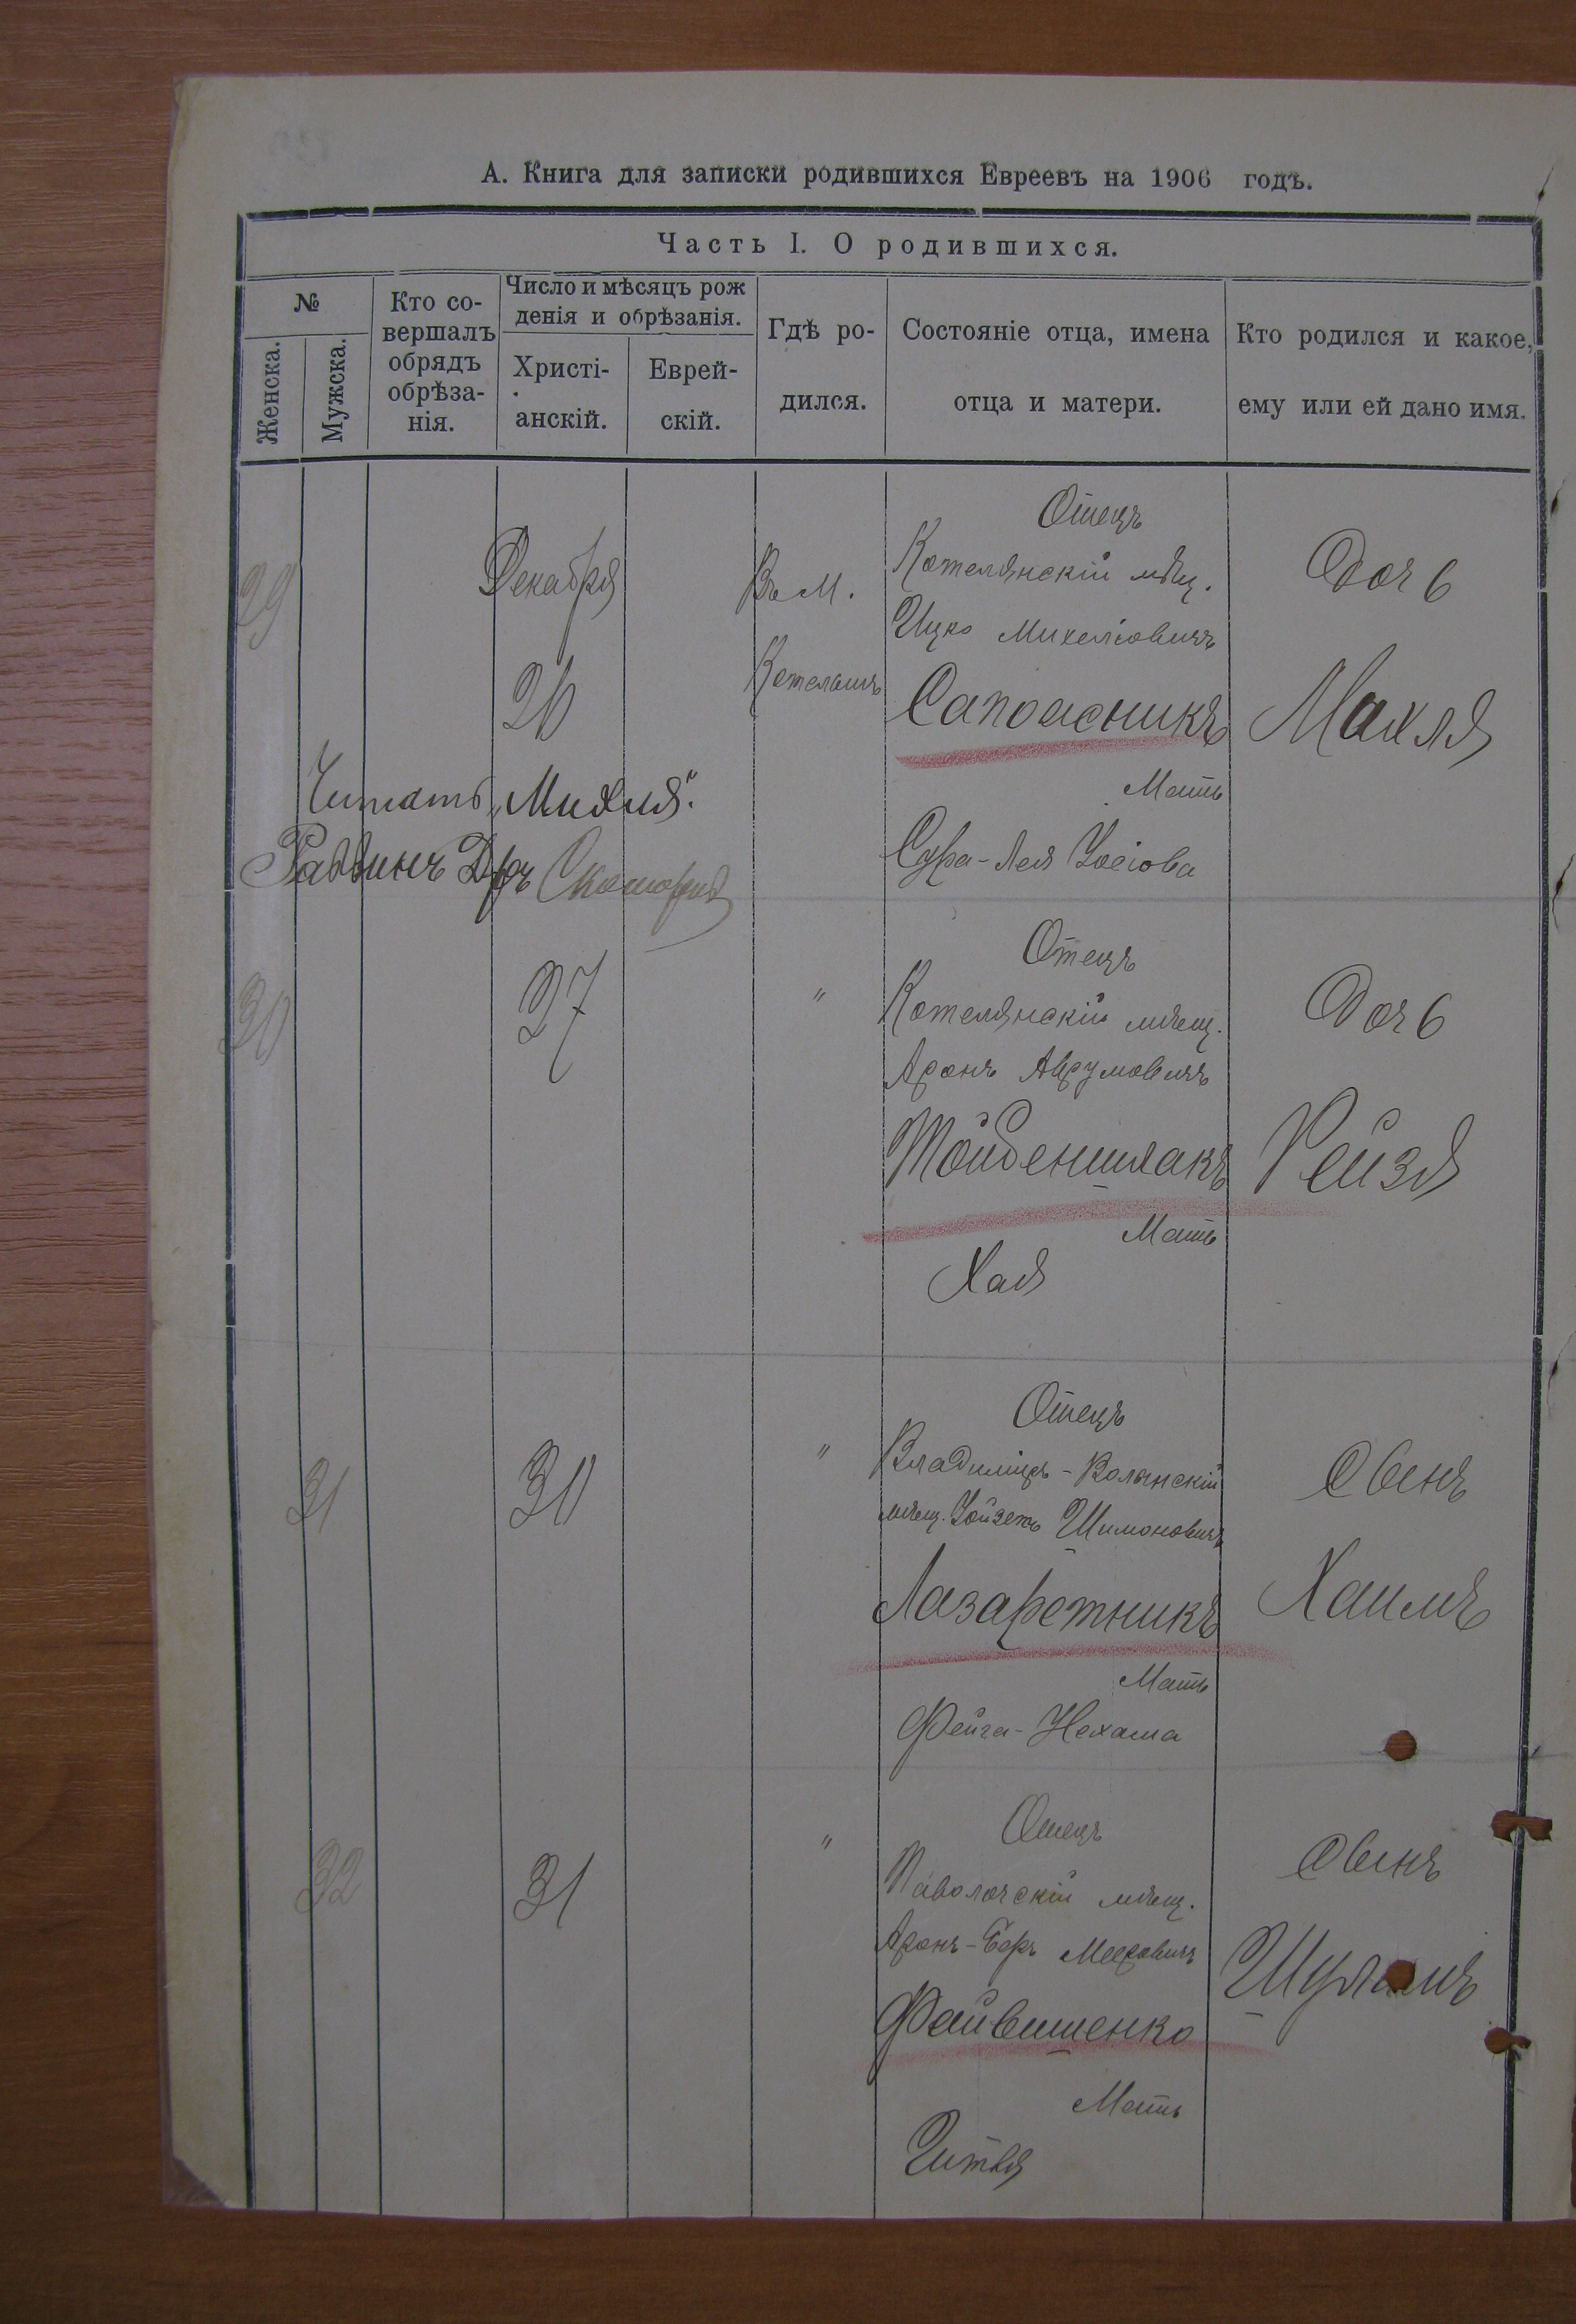 А. Книга для записки родившихся Евреевъ на 1906 годъ.
Часть I. О родившихся.
№
Женска.
Мужска.
Кто совершалъ обрядъ обрѣза-
нія.
Число и мѣсяцъ рож
денія и обрѣзанія.
Христі-
анскій.
Еврей-
скій.
Гдѣ ро-
дился.
Состояніе отца, имена
отца и матери.
Кто родился и какое,
ему или ей дано имя.
29
Декабря
20
Въ М.
Котельнѣ
Отецъ
Котелянскій мѣщ.
Ицко Михелiовичъ
Сапожникъ
Мать
Сура-Лея
Дочь
Махля
Читать „Михля".
Раввинъ Д-ръ
30
27
"
Отецъ
Котелянскій мѣщ.
Аронъ Аврумовичъ
Мать
Хая
Дочь
Рейзя
31
30
"
Отецъ
Владиміръ-Волынскій
мѣщ. Шимоновичъ
Лазаретникъ
Мать
Фейга-Нехама
Сынъ
Хаимъ
32
31
"
Отецъ
Паволочскій мѣщ.
Аронъ-Беръ Мееровичъ
Файвишенко
Мать
Читля
Сынъ
Шулимъ